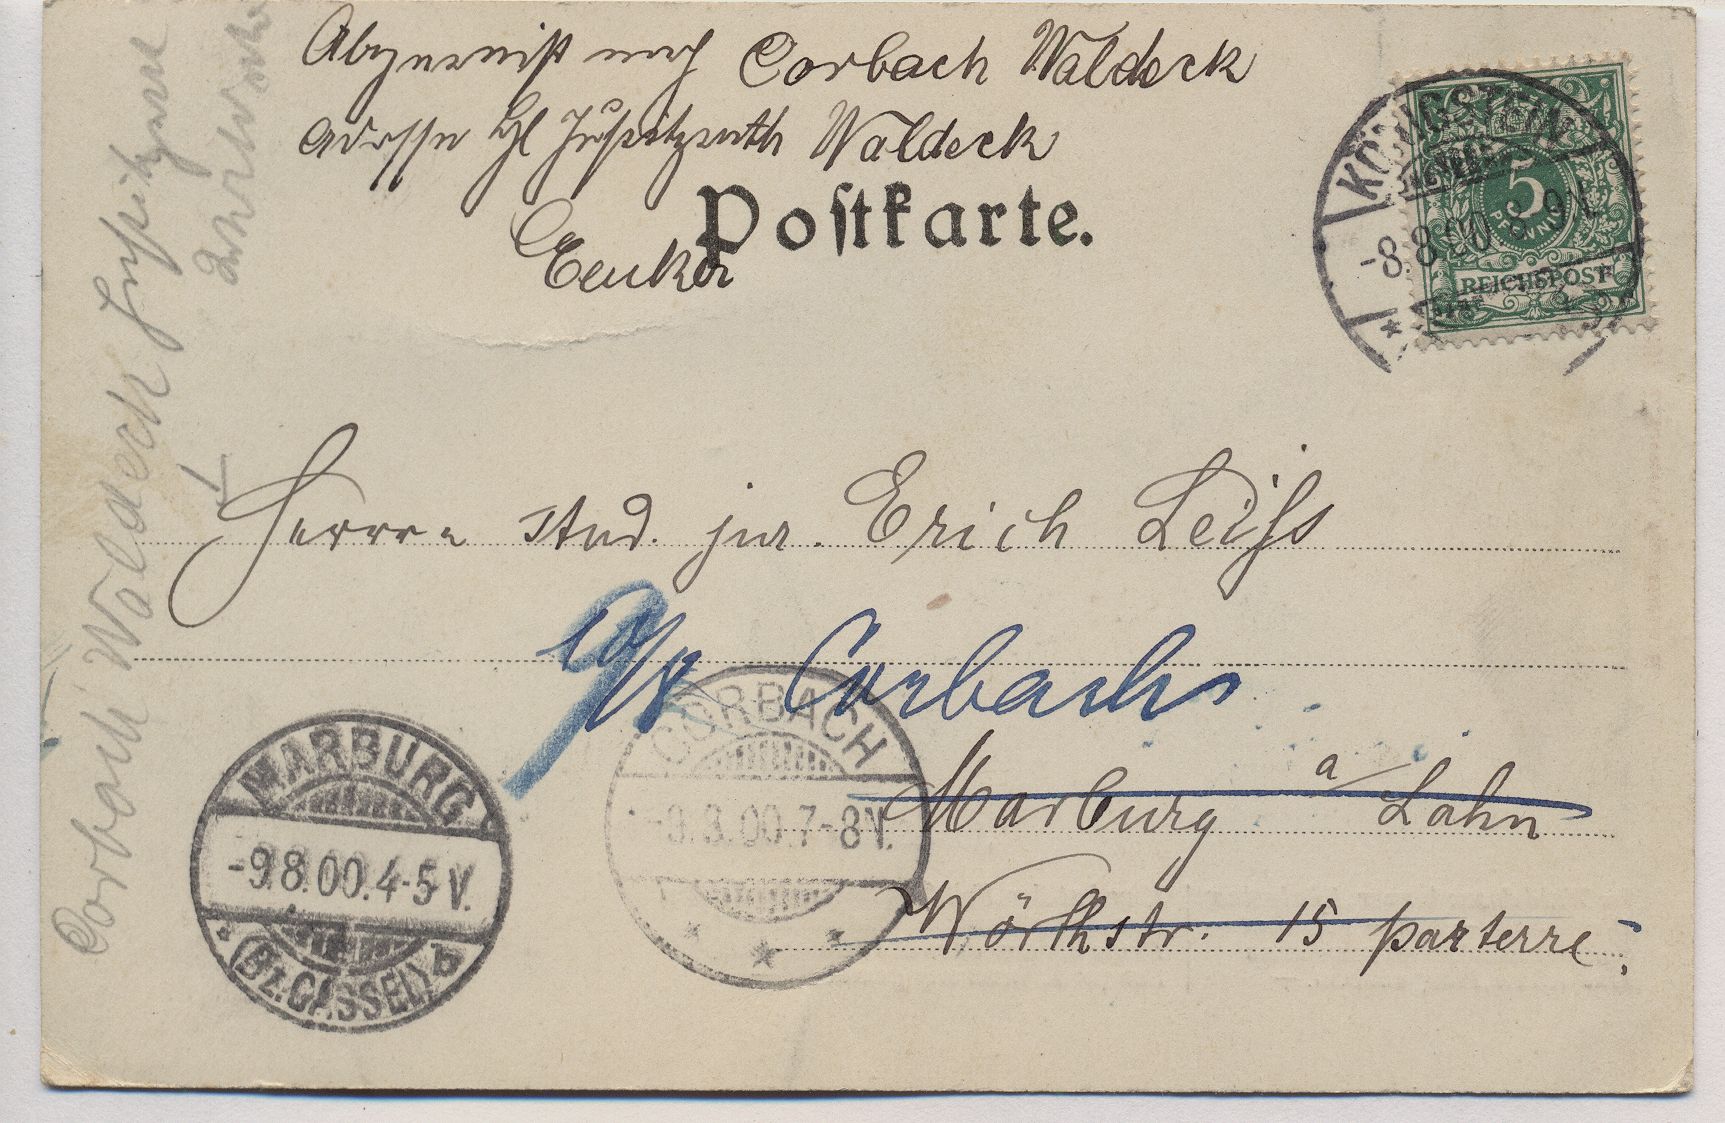 Abgereist nach Corbach Waldeck
Adresse Justizrath Waldeck
Postkarte.
KÖNIGSTEIN
-8.8.00 8-9N.
5
PFENNIG
REICHSPOST
Corbach Waldeck
Herrn stud. jur. Erich Leiss
Corbach
Marburg a/Lahn
Wörthstr. 15 parterre.
MARBURG
-9.8.00.4-5V.
(Bz.CASSEL) b
CORBACH
.00.7-8V.